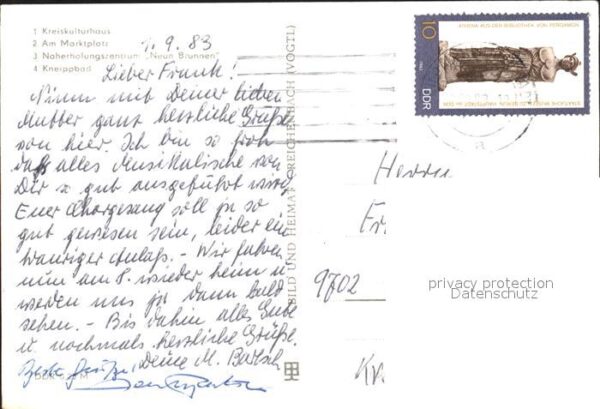 1 Kreiskulturhaus
2 Am Marktplatz
3 Naherholungszentrum "Neun Brunnen"
4 Kneippbad
1.9.83
Lieber Frank!
Nimm mit Deiner lieben
Mutter ganz herzliche Grüße
von hier. Ich bin so froh
daß alles Musikalische von
Dir so gut ausgeführt wird
Euer Chorgesang soll ja so
gut gewesen sein, leider ein
trauriger Anlaß. – Wir fahren
nun am 8. wieder heim u.
werden uns ja dann bald
sehen. – Bis dahin alles Gute
u. nochmals herzliche Grüße.
Deine M. Bartsch
BILD UND HEIMAT REICHENBACH (VOGTL)
10
DDR
ATHENA AUS DER BIBLIOTHEK VON PERGAMON
STAATLICHE MUSEEN ZU BERLIN HAUPTSTADT der DDR
Herrn
Fr
9702
privacy protection
Datenschutz